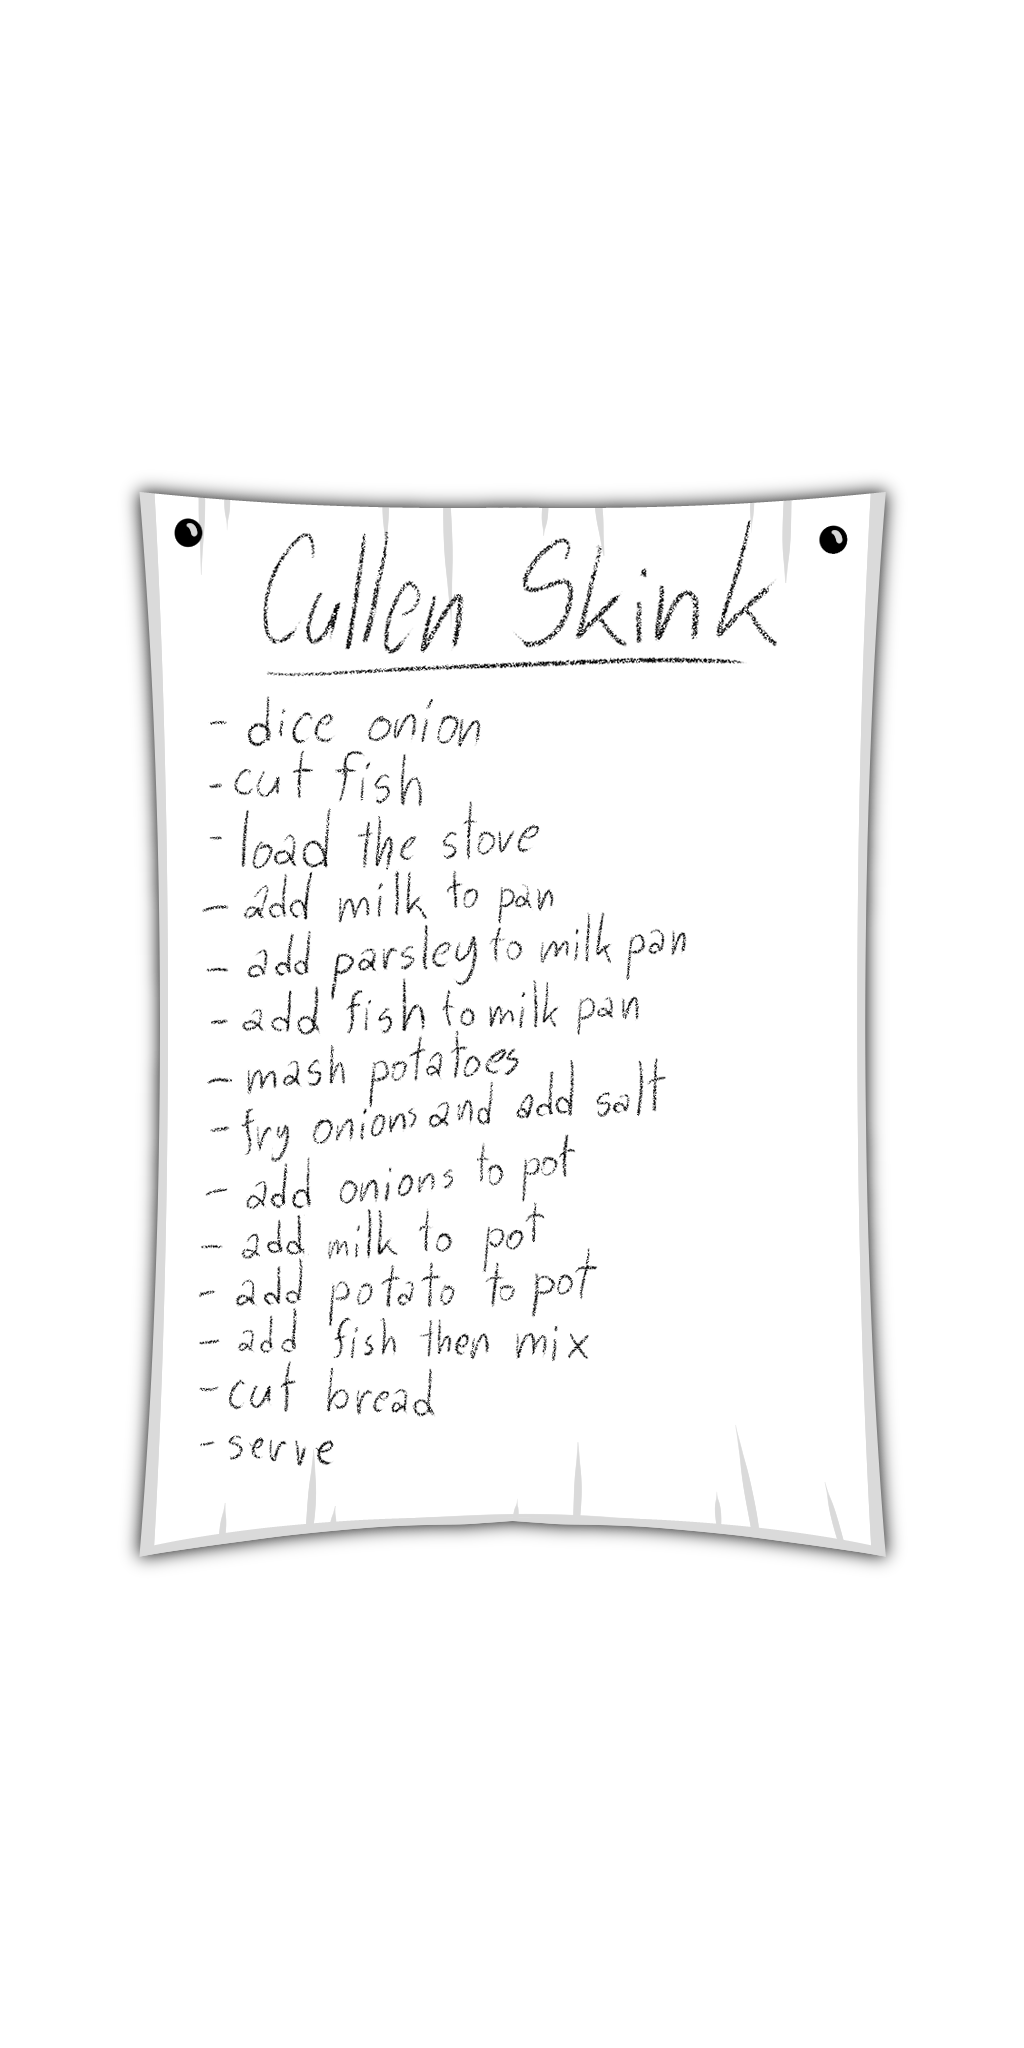 Cullen Skink
- dice onion
- cut fish
- load the stove
- add milk to pan
- add parsley to milk pan
- add fish to milk pan
- mash potatoes
- fry onions and add salt
- add onions to pot
- add milk to pot
- add potato to pot
- add fish then mix
- cut bread
- serve